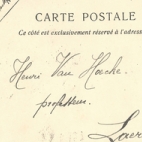 CARTE POSTALE
Ce côté est exclusivement réservé à l'adresse
Henri Van Hecke.
professeur.